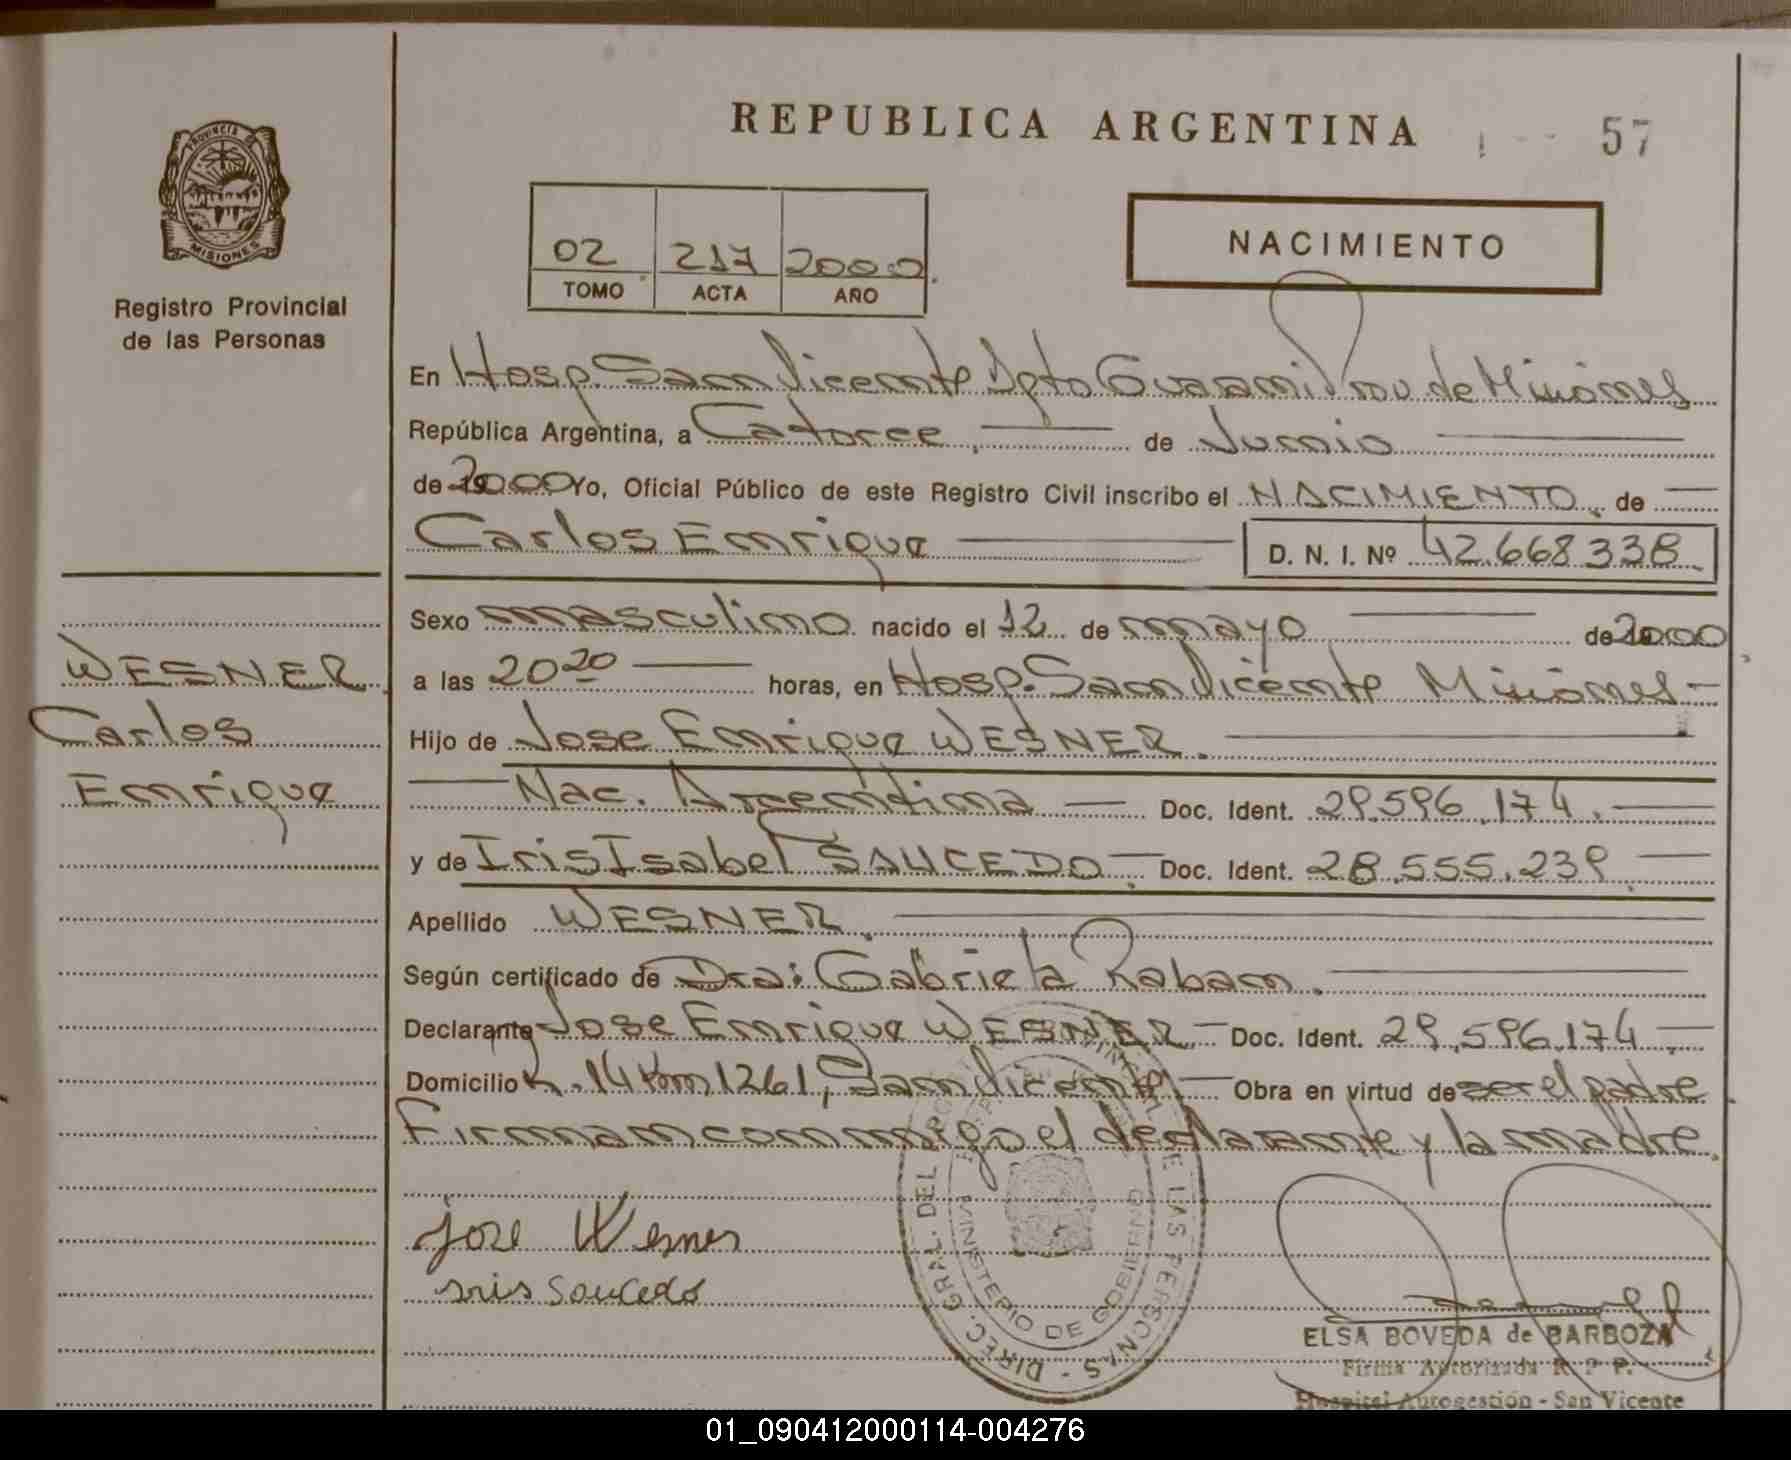 REPUBLICA ARGENTINA
57
PROVINCIA DE
MISIONES
Registro Provincial
de las Personas
02 217 2000
TOMO ACTA AÑO
NACIMIENTO
En Hosp. San Vicente Dpto Guarani Prov de Misiones
República Argentina, a Catorce de Junio
de 2000 Yo, Oficial Público de este Registro Civil inscribo el NACIMIENTO, de
Carlos Enrique D. N. I. Nº 42.668.338
Sexo masculino nacido el 12 de mayo de 2000
a las 20 20 horas, en Hosp. San Vicente Misiones
Hijo de Jose Enrique WESNER.
Nac. Argentina Doc. Ident. 29.596.174.
y de Iris Isabel SAUCEDO Doc. Ident. 28.555.239
Apellido WESNER
Según certificado de Dra: Gabriela Raban.
Declarante Jose Enrique WESNER Doc. Ident. 29.596.174
Domicilio K. 14 Km 1261, San Vicente Obra en virtud de ser el padre
Firman conmigo el declarante y la madre.
WESNER
Carlos
Enrique
jose Wesner
iris Saucedo
DIREC. GRAL. DEL DE LAS PERSONAS
MINISTERIO DE GOBIERNO
ELSA BOVEDA de BARBOZA
Firma Autorizada R. P. P.
Hospital Autogestión - San Vicente
01_090412000114-004276